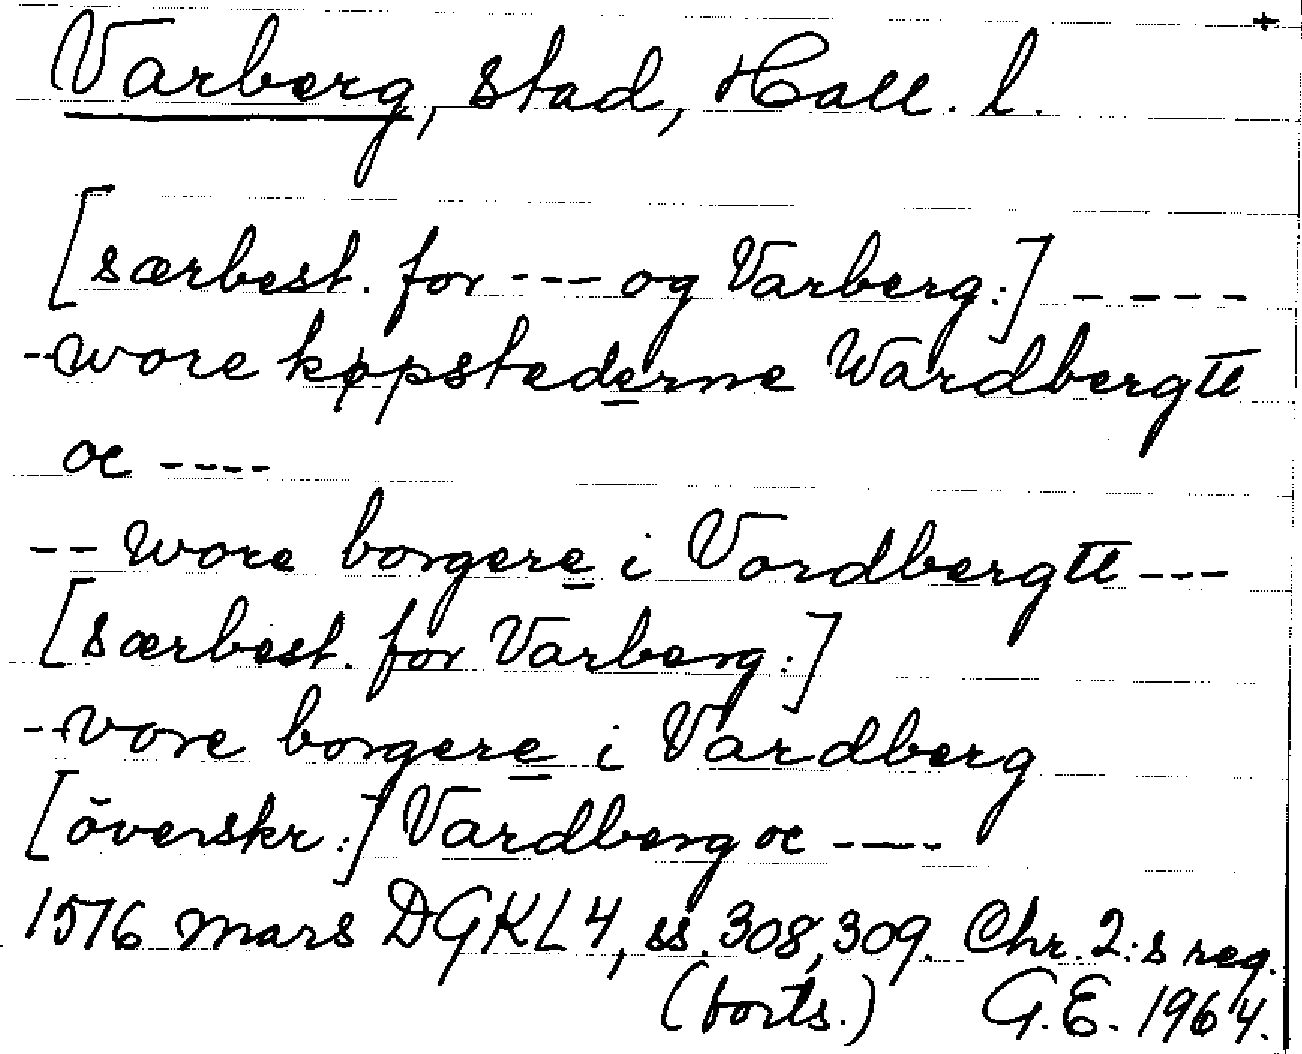 +
Varberg, stad, Hall. l.
[særbest. for --- og Varberg:] ----
--wore køpstederne Wardbergtt
oc ----
-- wore borgere i Vordbergtt ---
[særbest. for Varberg:]
--vore borgere i Vardberg
[överskr.:] Vardberg oc ----
1516 mars DGKL 4, ss. 308, 309. Chr. 2:s reg.
(forts.) G.E. 1964.